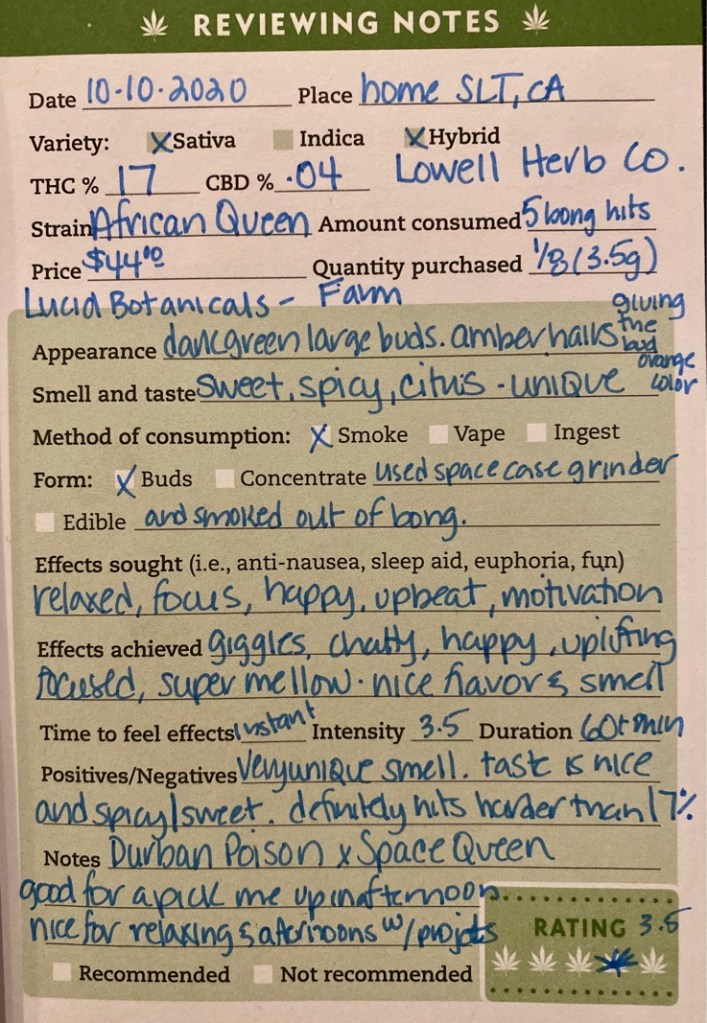 REVIEWING NOTES
Date 10.10.2020 Place home SLT, CA
Variety: Sativa Indica Hybrid
THC % 17 CBD % .04 Lowell Herb Co.
Strain African Queen Amount consumed 5 bong hits
Price $44.00 Quantity purchased 1/8 (3.5g)
Lucid Botanicals - Farm
Appearance dark green large buds. amber hairs giving the bud orange color
Smell and taste sweet, spicy, citrus - unique
Method of consumption: Smoke Vape Ingest
Form: Buds Concentrate used space case grinder
Edible and smoked out of bong.
Effects sought (i.e., anti-nausea, sleep aid, euphoria, fun)
relaxed, focus, happy, upbeat, motivation
Effects achieved giggles, chatty, happy, uplifting
focused, super mellow. nice flavor & smell
Time to feel effects instant Intensity 3.5 Duration 60+ min
Positives/Negatives Very unique smell. taste is nice
and spicy/sweet. definitely hits harder than 17%
Notes Durban Poison x Space Queen
good for a pick me up in afternoon.
nice for relaxing & afternoons w/ projects
RATING 3.5
Recommended Not recommended